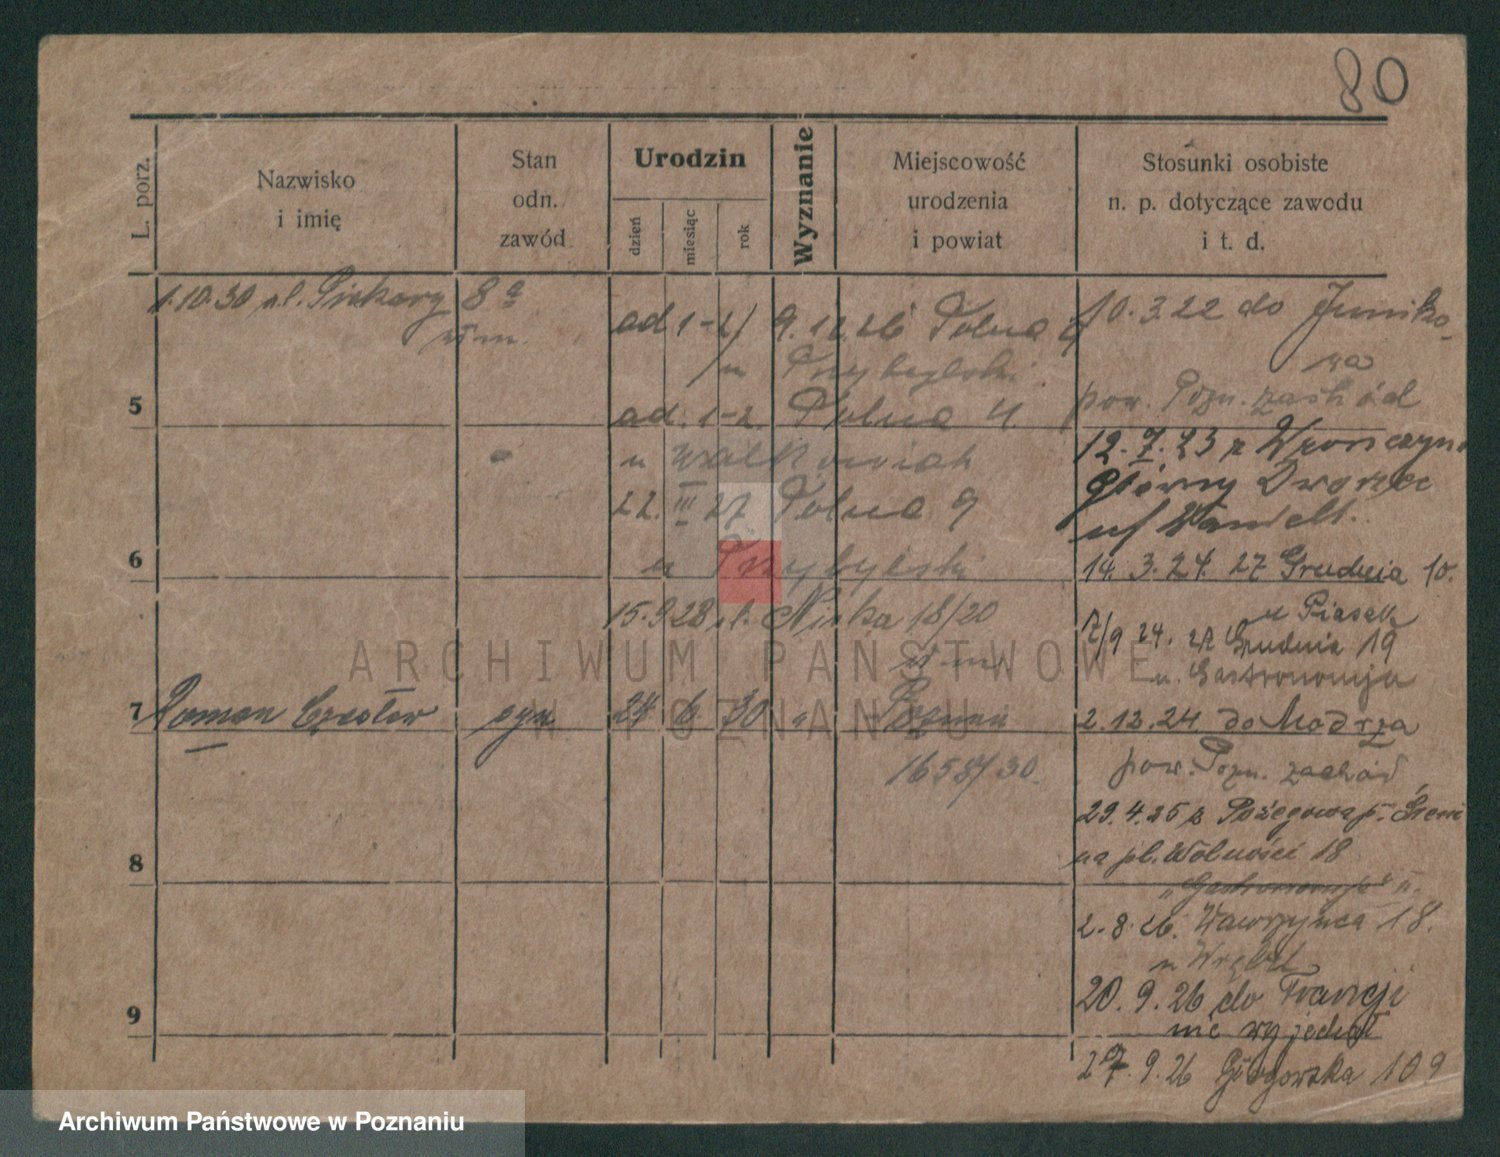 80
L. porz.
Nazwisko
i imię
Stan
odn.
zawód
Urodzin
dzień
miesiąc
rok
Wyznanie
Miejscowość
urodzenia
i powiat
Stosunki osobiste
n. p. dotyczące zawodu
i t. d.
1.10.30 ul. Piekary 8a
wł m.
ad 1-2/ 9.12.26 Polna 9
u Przybylski
5
ad. 1-2. Polna 4.
u Walkowiak
22. III 27 Polna 9
6
u Przybylski
15.9.28 ul. Niska 18/20
wł m.
ARCHIWUM PAŃSTWOWE
W POZNANIU
7 Roman Czesław syn 24 6 30 " Poznań
1658/30.
8
9
10.3.22 do Juniko-
wa
pow. Pozn. zachód
12.7.23 z Wronczyna
Główny Dworzec
u/
14.3.24. 27 Grudnia 10.
u Piasek
7/9 24. 27 Grudnia 19
u. Gastronomja
2.12.24. do Modrza
pow. Pozn. zachód
29.4.25 z Pożegowa p.
na pl. Wolności 18
"Gastronomja"
2.8.26. Wawrzyńca 18.
u
20.9.26 do Francji
nie wyjechał
27.9.26 Głogowska 109
Archiwum Państwowe w Poznaniu